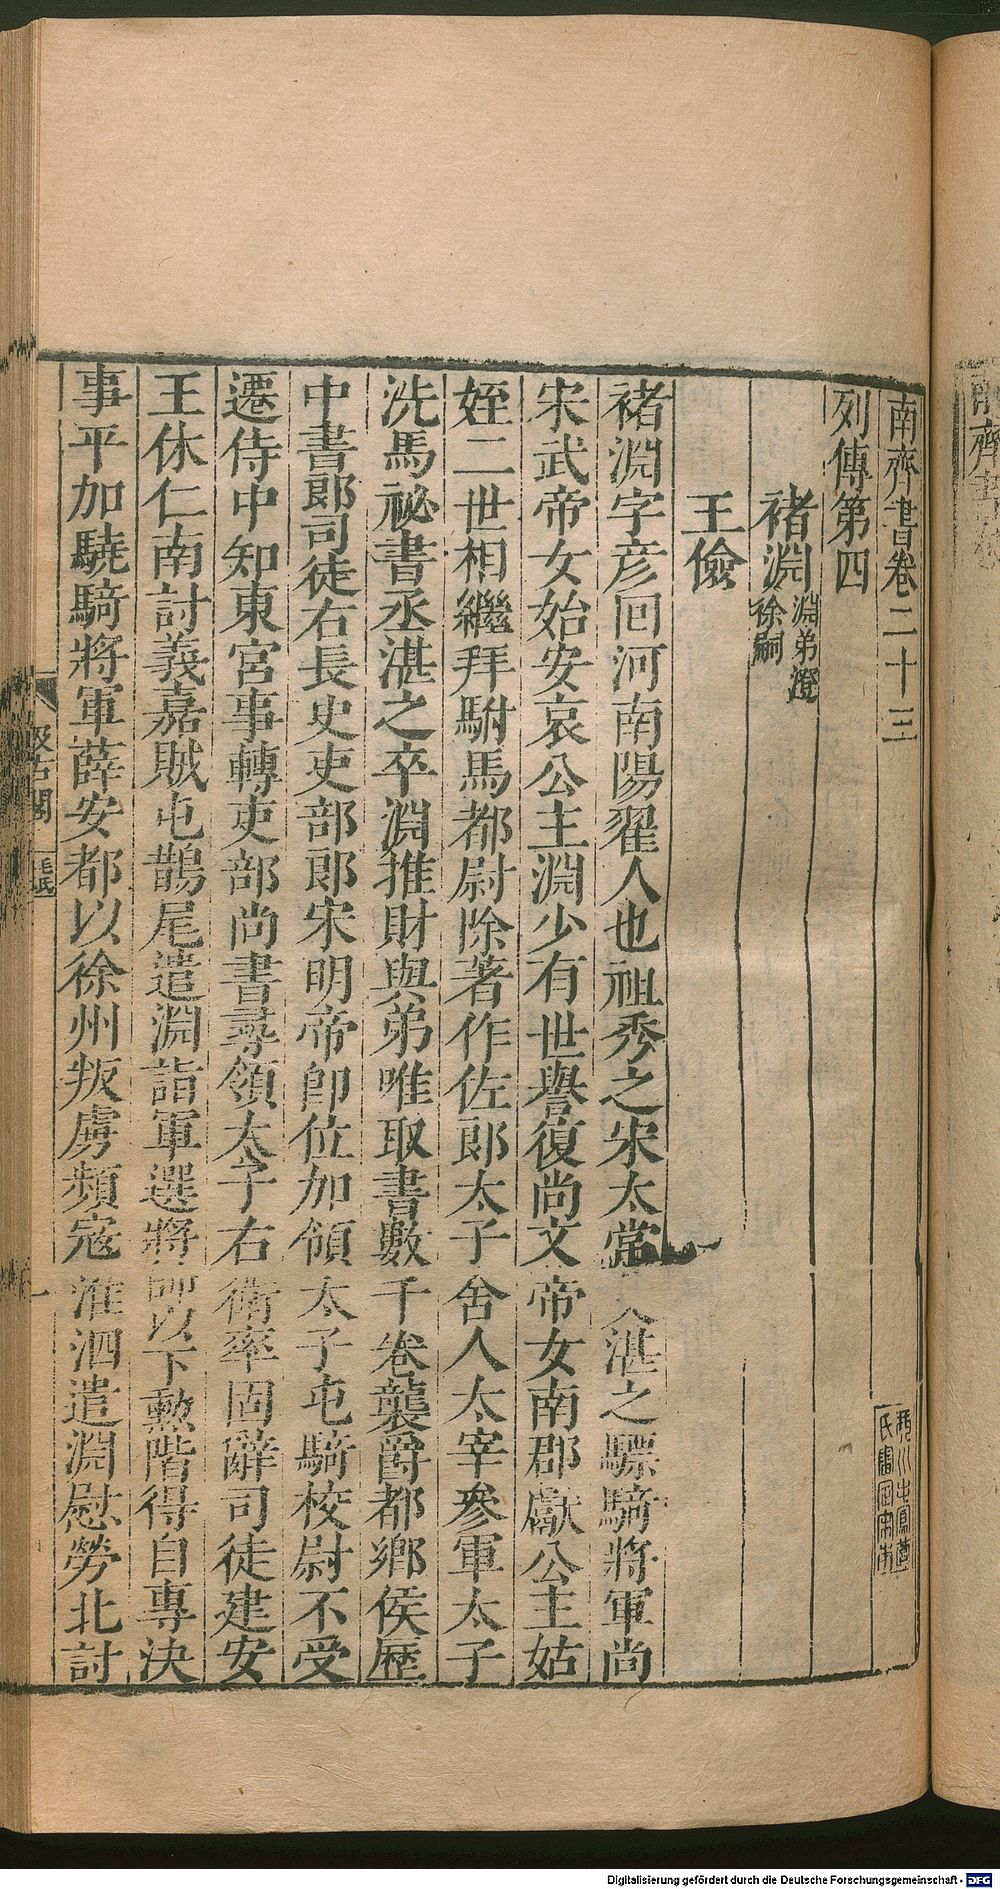 南齊書卷二十三
列傳第四
褚淵 淵弟澄
徐嗣
王儉
褚淵字彥回河南陽翟人也祖秀之宋太常 湛之驃騎將軍尚
宋武帝女始安哀公主淵少有世譽復尚文帝女南郡獻公主姑
姪二世相繼拜駙馬都尉除著作佐郎太子舍人太宰參軍太子
洗馬祕書丞湛之卒淵推財與弟唯取書數千卷襲爵都鄉侯歷
中書郎司徒右長史吏部郎宋明帝卽位加領太子屯騎校尉不受
遷侍中知東宮事轉吏部尚書尋領太子右衞率固辭司徒建安
王休仁南討義嘉賊屯鵲尾遣淵詣軍選將帥以下勳階得自專決
事平加驍騎將軍薛安都以徐州叛虜頻寇淮泗遣淵慰勞北討
汲古閣
Digitalisierung gefördert durch die Deutsche Forschungsgemeinschaft - DFG